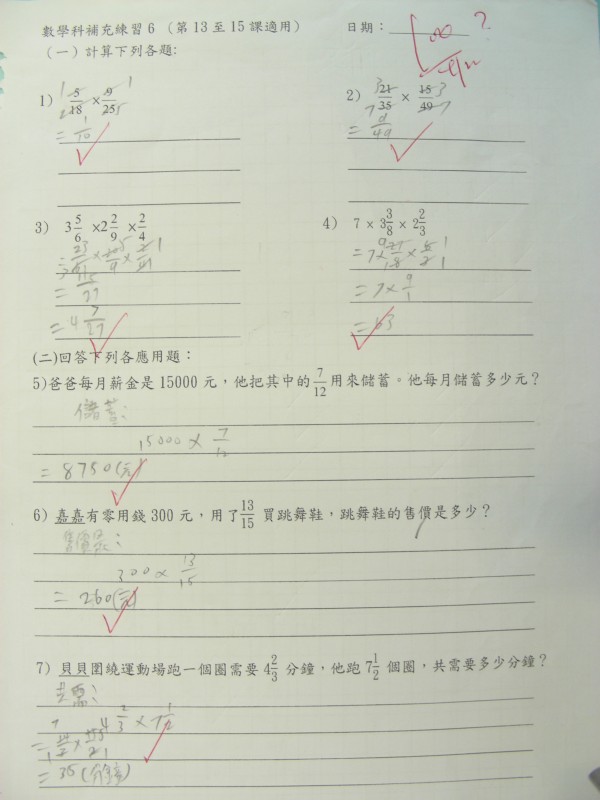 數學科補充練習6 (第13至15課適用) 日期:
100 ?
(一)計算下列各題:
1) 5/18 × 9/25
= 1/10
2) 21/35 × 15/49
= 9/49
3) 3 5/6 ×2 2/9 ×2/4
= 115/27
= 4 7/27
4) 7 × 3 3/8 × 2 2/3
= 7 × 9/1
= 63
(二)回答下列各應用題:
5)爸爸每月薪金是15000元,他把其中的7/12用來儲蓄。他每月儲蓄多少元?
儲蓄:
15000 × 7/12
= 8750(元)
6) 嘉嘉有零用錢300元,用了13/15 買跳舞鞋,跳舞鞋的售價是多少?
售價是:
300 × 13/15
= 260(元)
7) 貝貝圍繞運動場跑一個圈需要4 2/3 分鐘,他跑7 1/2 個圈,共需要多少分鐘?
共需:
4 2/3 × 7 1/2
= 35(分鐘)